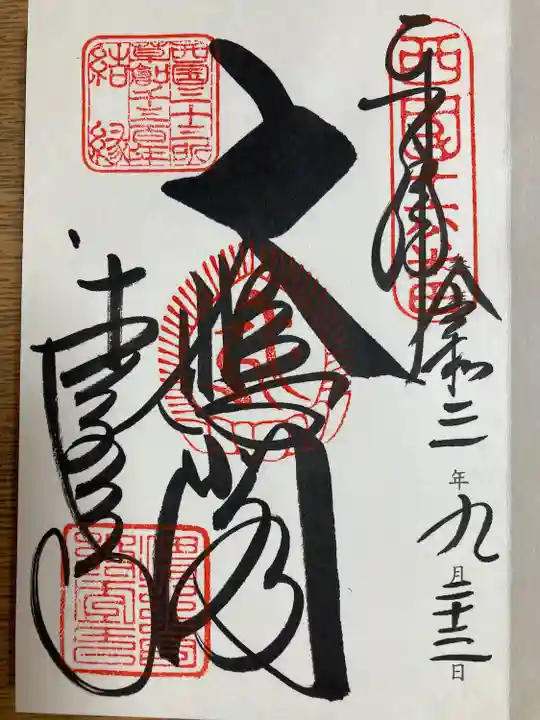 西国十六番
奉拝
令和三年九月二十二日
大悲閣
清水寺
西国三十三所
草創千三百年
結縁